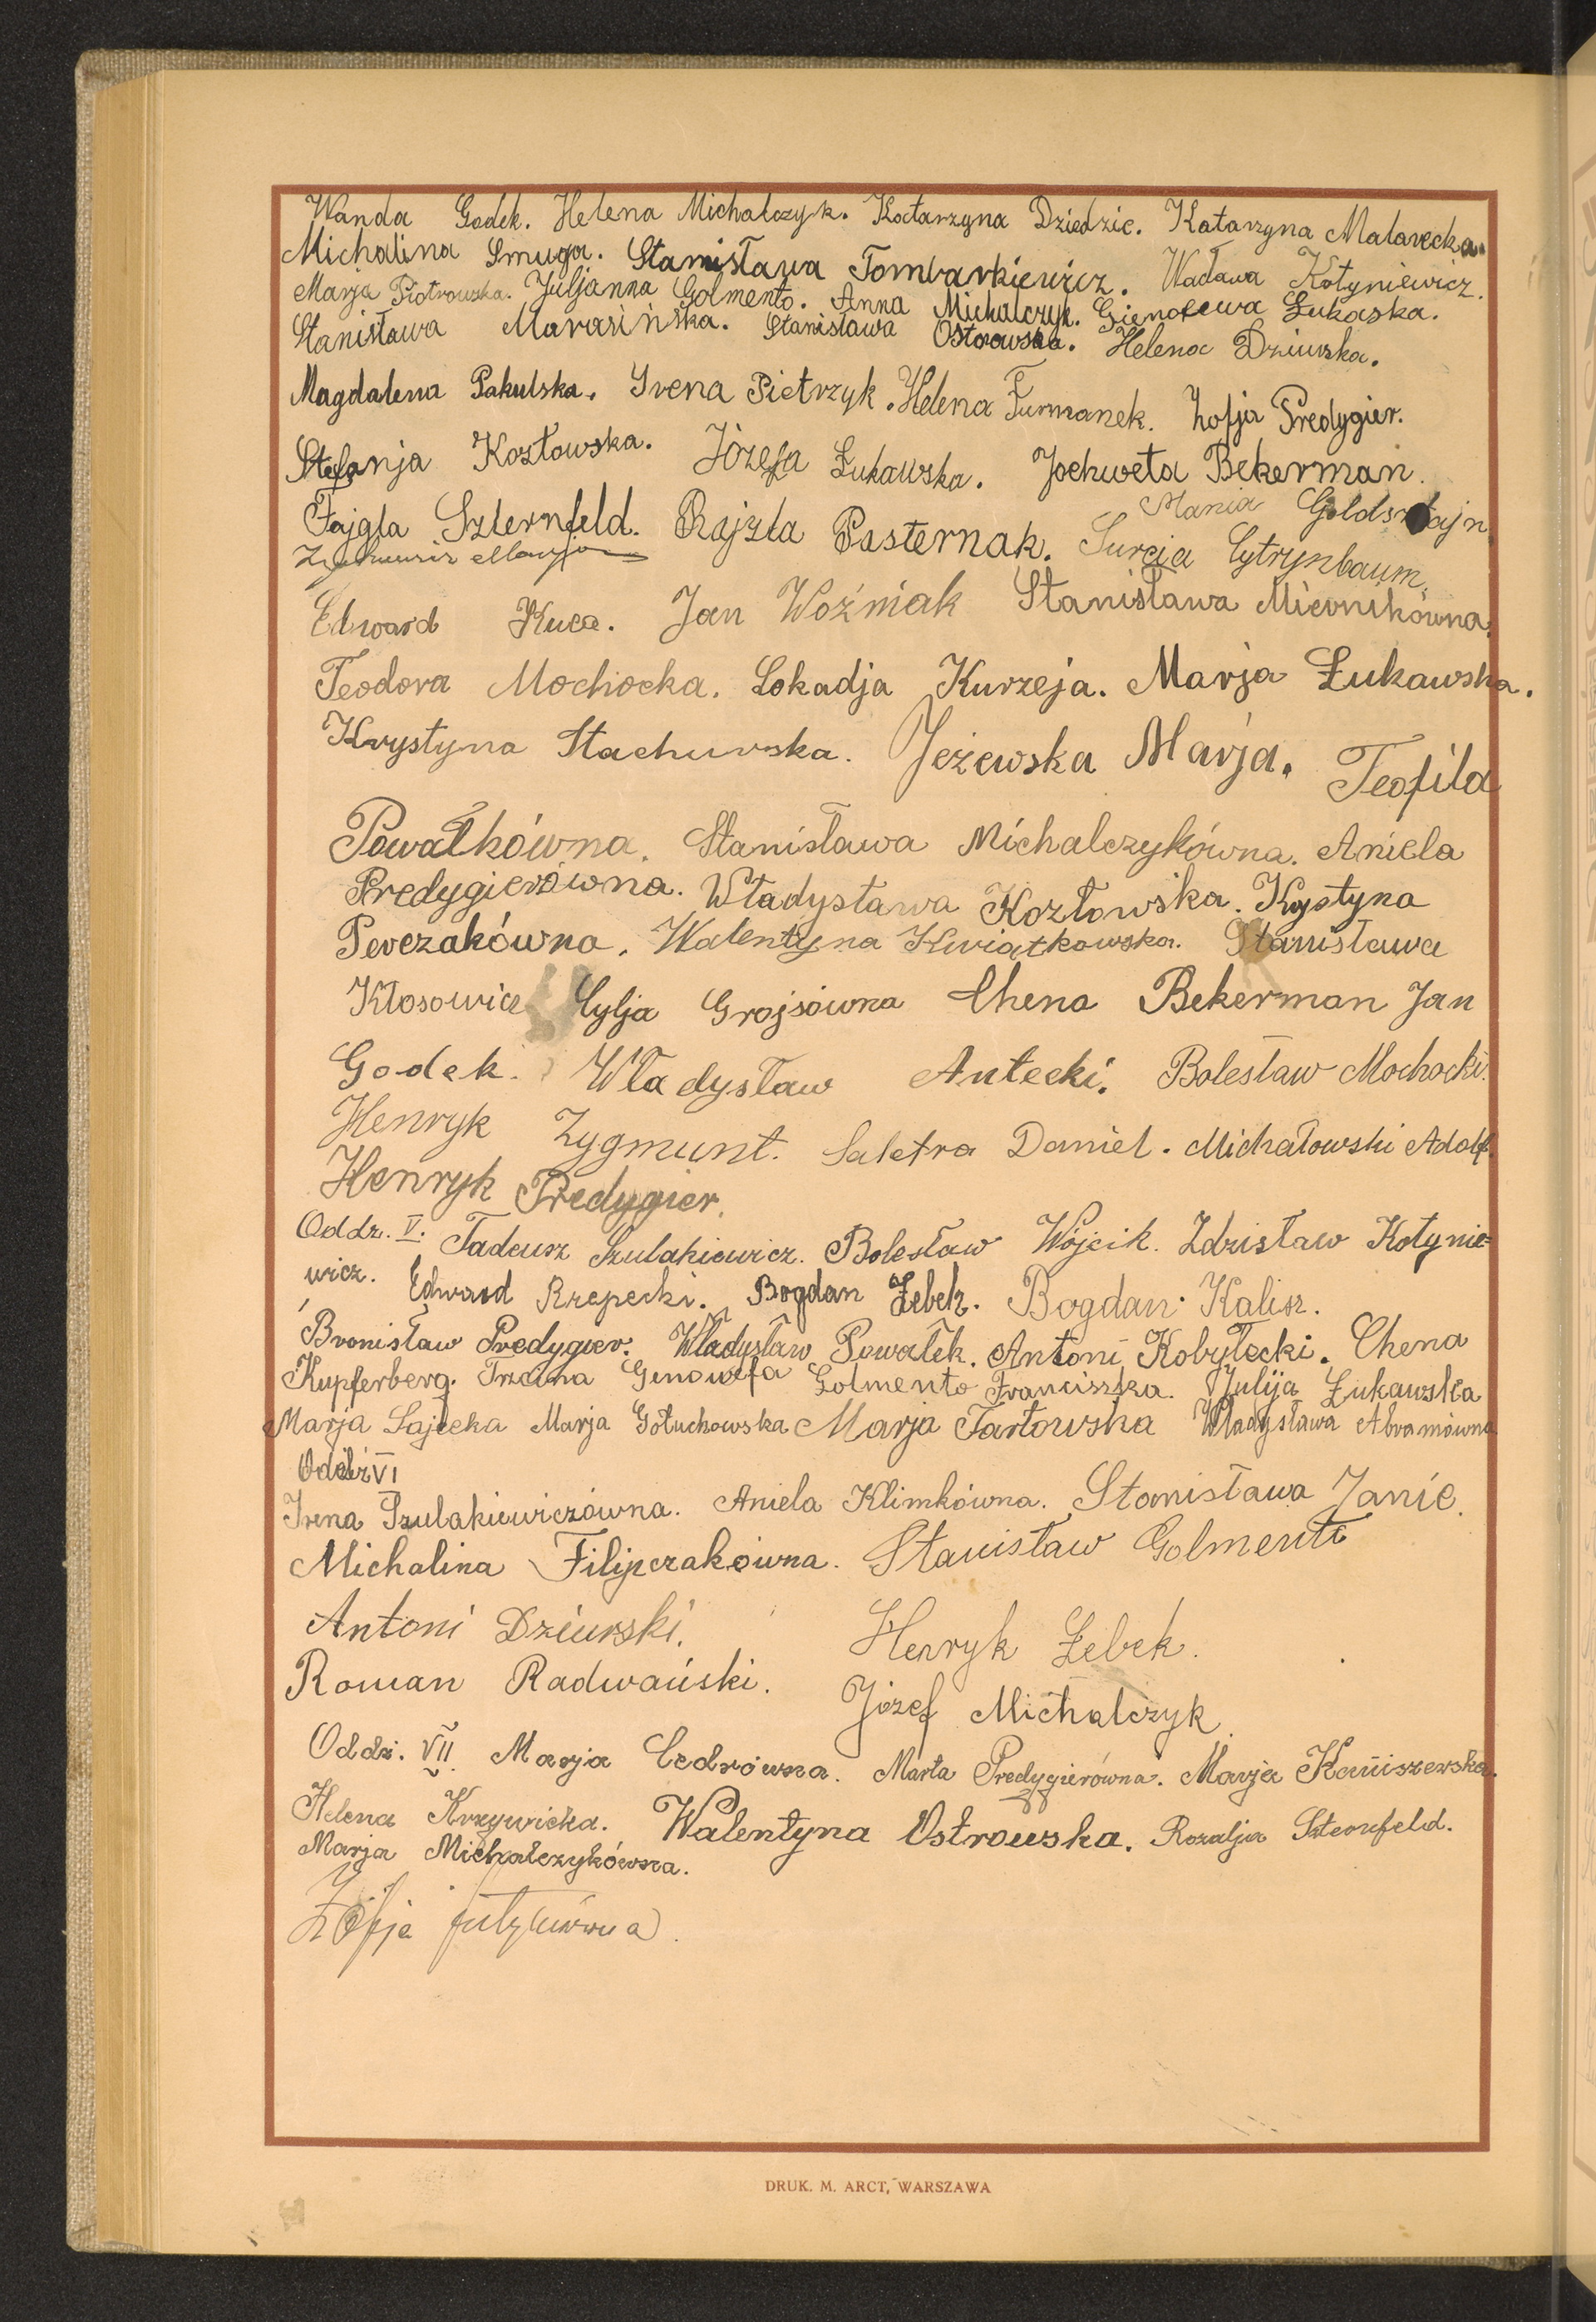 Wanda Godek. Helena Michalczyk. Katarzyna Dziedzic. Katarzyna Malarecka.
Michalina Smuga. Stanisława Tombarkiewicz. Wacława Kotyniewicz.
Marja Piotrowska. Juljanna Golmento. Anna Michalczyk. Gienofewa Łukaska.
Stanisława Marasińska. Stanisława Ostrowska. Helena Dziurska.
Magdalena Pakulska. Irena Pietrzyk. Helena Furmanek. Zofja Predygier.
Stefanja Kozłowska. Józefa Łukawska. Jochweta Bekerman.
Mania Goldsztajn.
Fajgla Szternfeld. Rajzla Pasternak. Surcia Cytrynbaum.
Edward Kuca. Jan Woźniak Stanisława Miernikówna.
Teodora Mochocka. Lokadja Kurzeja. Marja Łukawska.
Krystyna Stachurska. Jeżewska Marja. Teofila
Powałkówna. Stanisława Michalczykówna. Aniela
Predygierówna. Władysława Kozłowska. Krystyna
Perczakówna. Walentyna Kwiatkowska. Stanisława
Kłosowicz Cylja Grojsówna Chena Bekerman Jan
Godek. Władysław Antecki. Bolesław Mochocki.
Henryk Zygmunt. Saletra Daniel. Michałowski Adolf.
Henryk Predygier.
Oddz. V. Tadeusz Szulakiewicz. Bolesław Wójcik. Zdzisław Kotynie=
wicz. Edward Rzepecki. Bogdan Łebek. Bogdan Kalisz.
Bronisław Predygier. Władysław Powałek. Antoni Kobyłecki. Chena
Kupferberg. Trzcina Genowefa Golmento Franciszka. Julija Łukawska
Marja Sajecka Marja Gołuchowska Marja Tartowska Władysława Abramówna
Oddz VI
Irena Szulakiewiczówna. Aniela Klimkówna. Stanisława Janic.
Michalina Filipczakówna. Stanisław Golmento
Antoni Dziurski. Henryk Łebek.
Roman Radwański. Józef Michalczyk.
Oddz. VII. Marja Cedrówna. Marta Predygierówna. Marja Kaniszewska.
Helena Krzywicka. Walentyna Ostrowska. Rozalja Szternfeld.
Marja Michalczykówna.
Zofja
DRUK. M. ARCT, WARSZAWA